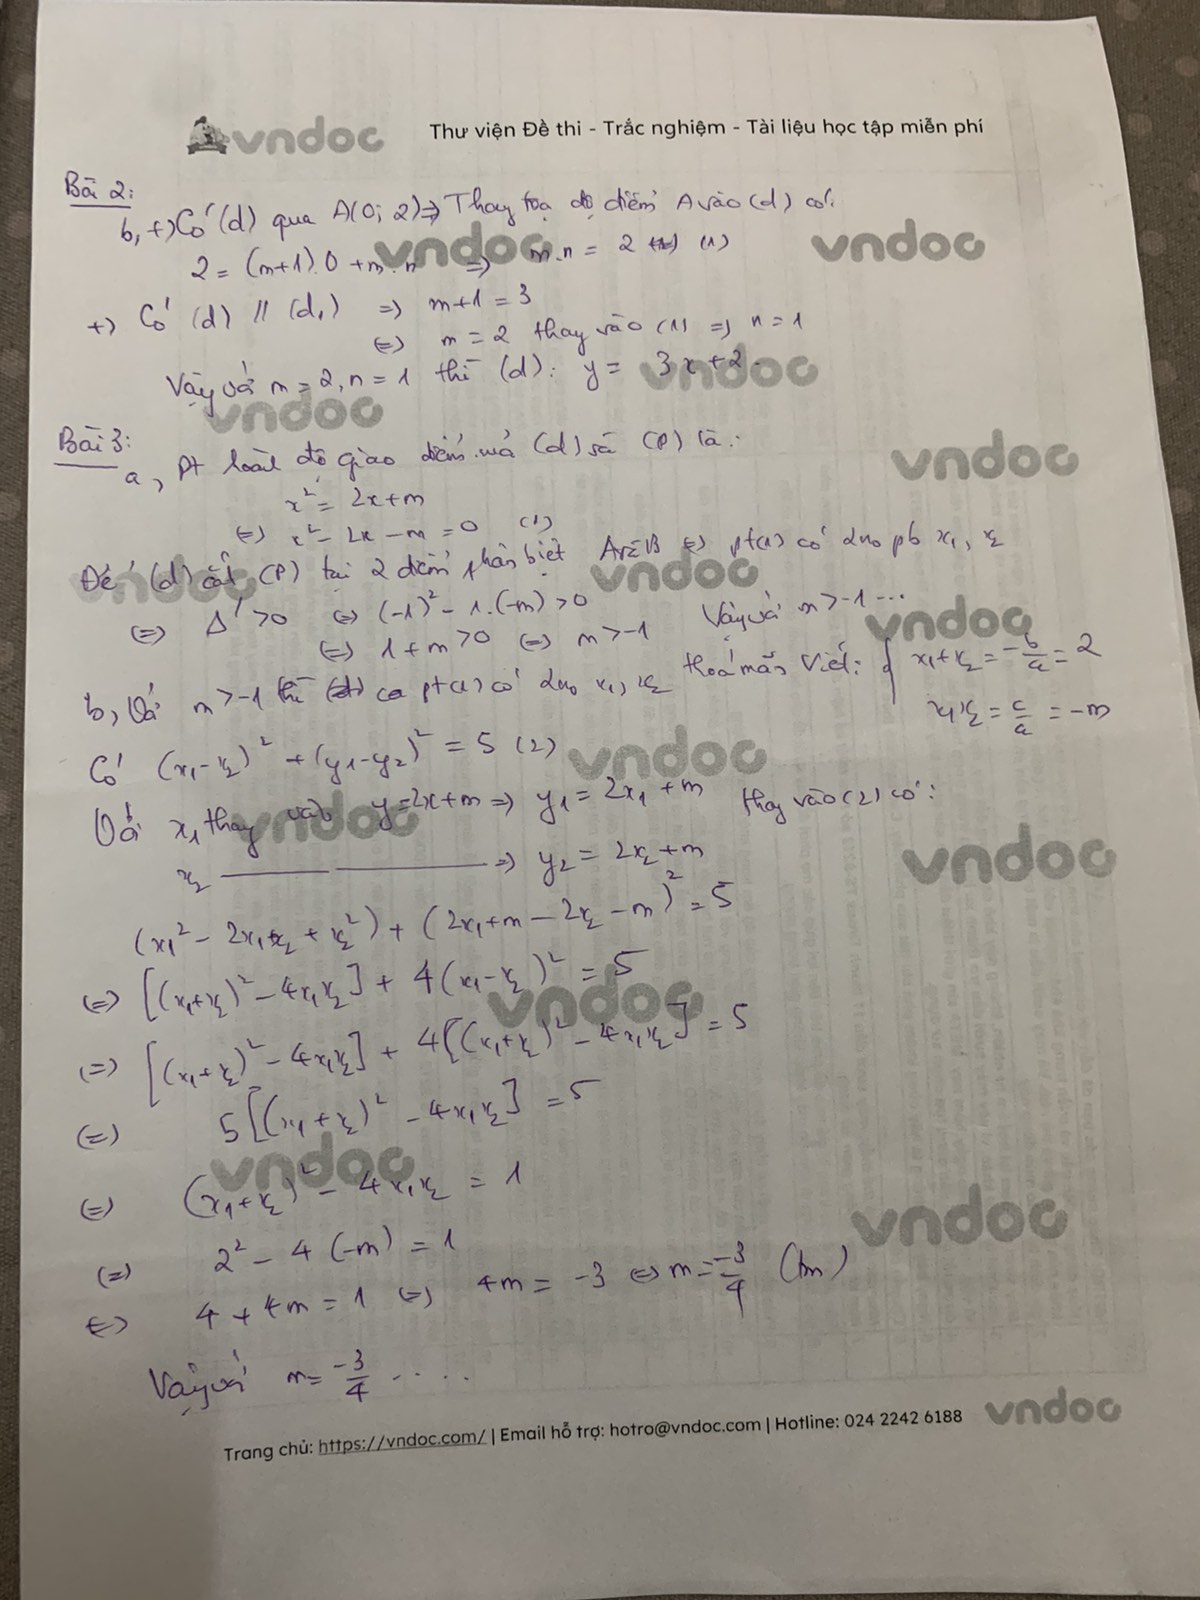 vndoc Thư viện Đề thi - Trắc nghiệm - Tài liệu học tập miễn phí
Bài 2:
b, +) Có (d) qua A(0; 2) => Thay toạ độ điểm A vào (d) có:
2 = (m+1).0 + m.n => m.n = 2 (1)
vndoc vndoc
+) Có (d) // (d₁) => m+1 = 3
<=> m = 2 thay vào (1) => n = 1
Vậy với m = 2, n = 1 thì (d): y = 3x + 2.
vndoc vndoc
Bài 3:
a, Pt hoành độ giao điểm của (d) và (P) là:
vndoc
x² = 2x+m
<=> x² - 2x - m = 0 (1)
Để (d) cắt (P) tại 2 điểm phân biệt A và B <=> pt(1) có 2 no pb x₁, x₂
vndoc vndoc
<=> Δ' > 0 <=> (-1)² - 1.(-m) > 0 Vậy với m > -1 ...
<=> 1 + m > 0 <=> m > -1
vndoc
b, Với m > -1 thì pt(1) có 2 no x₁, x₂ thoả mãn Viét: { x₁+x₂ = -b/a = 2
x₁x₂ = c/a = -m
Có (x₁-x₂)² + (y₁-y₂)² = 5 (2)
vndoc
Với x₁ thay vào y=2x+m => y₁ = 2x₁ + m thay vào (2) có:
vndoc
x₂ ——— ——— => y₂ = 2x₂ + m
vndoc
(x₁² - 2x₁x₂ + x₂²) + (2x₁+m - 2x₂ - m)² = 5
<=> [(x₁+x₂)² - 4x₁x₂] + 4(x₁-x₂)² = 5
vndoc
<=> [(x₁+x₂)² - 4x₁x₂] + 4[(x₁+x₂)² - 4x₁x₂] = 5
<=> 5[(x₁+x₂)² - 4x₁x₂] = 5
vndoc
<=> (x₁+x₂)² - 4x₁x₂ = 1
vndoc
<=> 2² - 4(-m) = 1
<=> 4 + 4m = 1 <=> 4m = -3 <=> m = -3/4 (tm)
Vậy với m = -3/4 ....
Trang chủ: https://vndoc.com/ | Email hỗ trợ: hotro@vndoc.com | Hotline: 024 2242 6188 vndoc